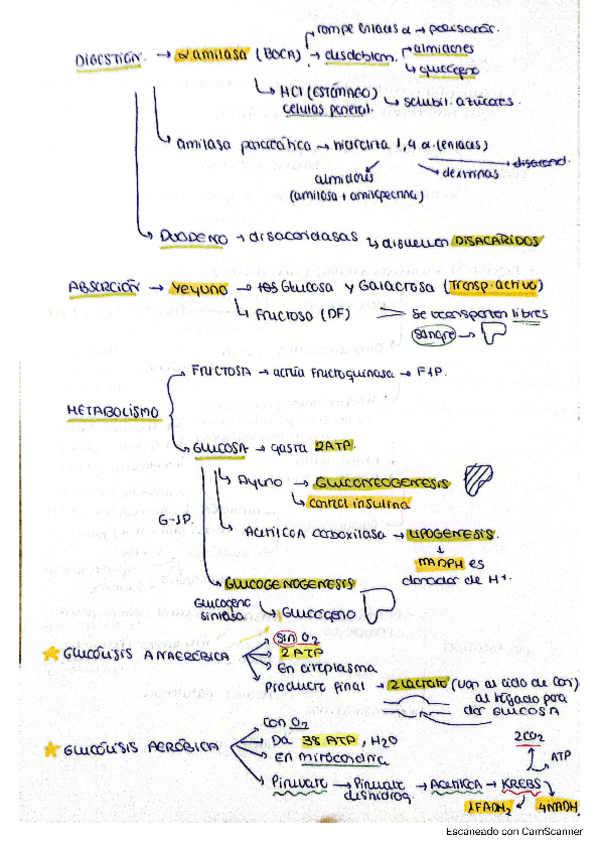 rompe enlaces α → polisacár.
DIGESTIÓN → α amilasa (BOCA) → desdoblam. → almidones
→ glucógeno
→ HCl (ESTÓMAGO) → solubil. azúcares.
células parietal.
→ amilasa pancreática → hidroliza 1,4 α (enlaces)
→ disacarid.
almidones → dextrinas
(amilosa + amilopectina)
→ DUODENO → disacaridasas → disuelven DISACÁRIDOS
ABSORCIÓN → YEYUNO → Glucosa y Galactosa (Transp. activo)
→ Fructosa (DF) Se transportan libres
Sangre →
FRUCTOSA → actúa fructoquinasa → F1P.
METABOLISMO
GLUCOSA → gasta 2ATP.
→ Ayuno → GLUCONEOGENESIS
→ control insulina
G-1P.
→ Acetil CoA carboxilasa → LIPOGENESIS.
NADPH es
donador de H+.
→ GLUCOGENOGENESIS
Glucógeno
sintasa → Glucógeno
sin O2
★ GLUCÓLISIS ANAERÓBICA → 2 ATP
En citoplasma
Producto final → 2 lactato (van al ciclo de Cori)
al hígado para
dar GLUCOSA
con O2
★ GLUCÓLISIS AERÓBICA → Da 38 ATP, H2O
2CO2
En mitocondria
ATP
Piruvato → Piruvato deshidrog. → Acetil CoA → KREBS
1FADH2 4NADH.
Escaneado con CamScanner